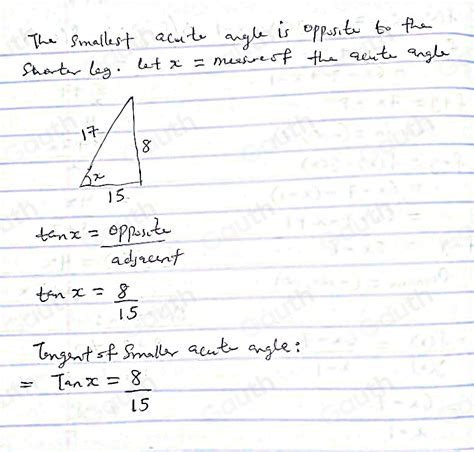 The smallest acute angle is opposite to the
shorter leg. let x = measure of the acute angle
17
8
x
15
tan x = opposite
adjacent
tan x = 8
15
Tangent of Smaller acute angle:
= Tan x = 8
15